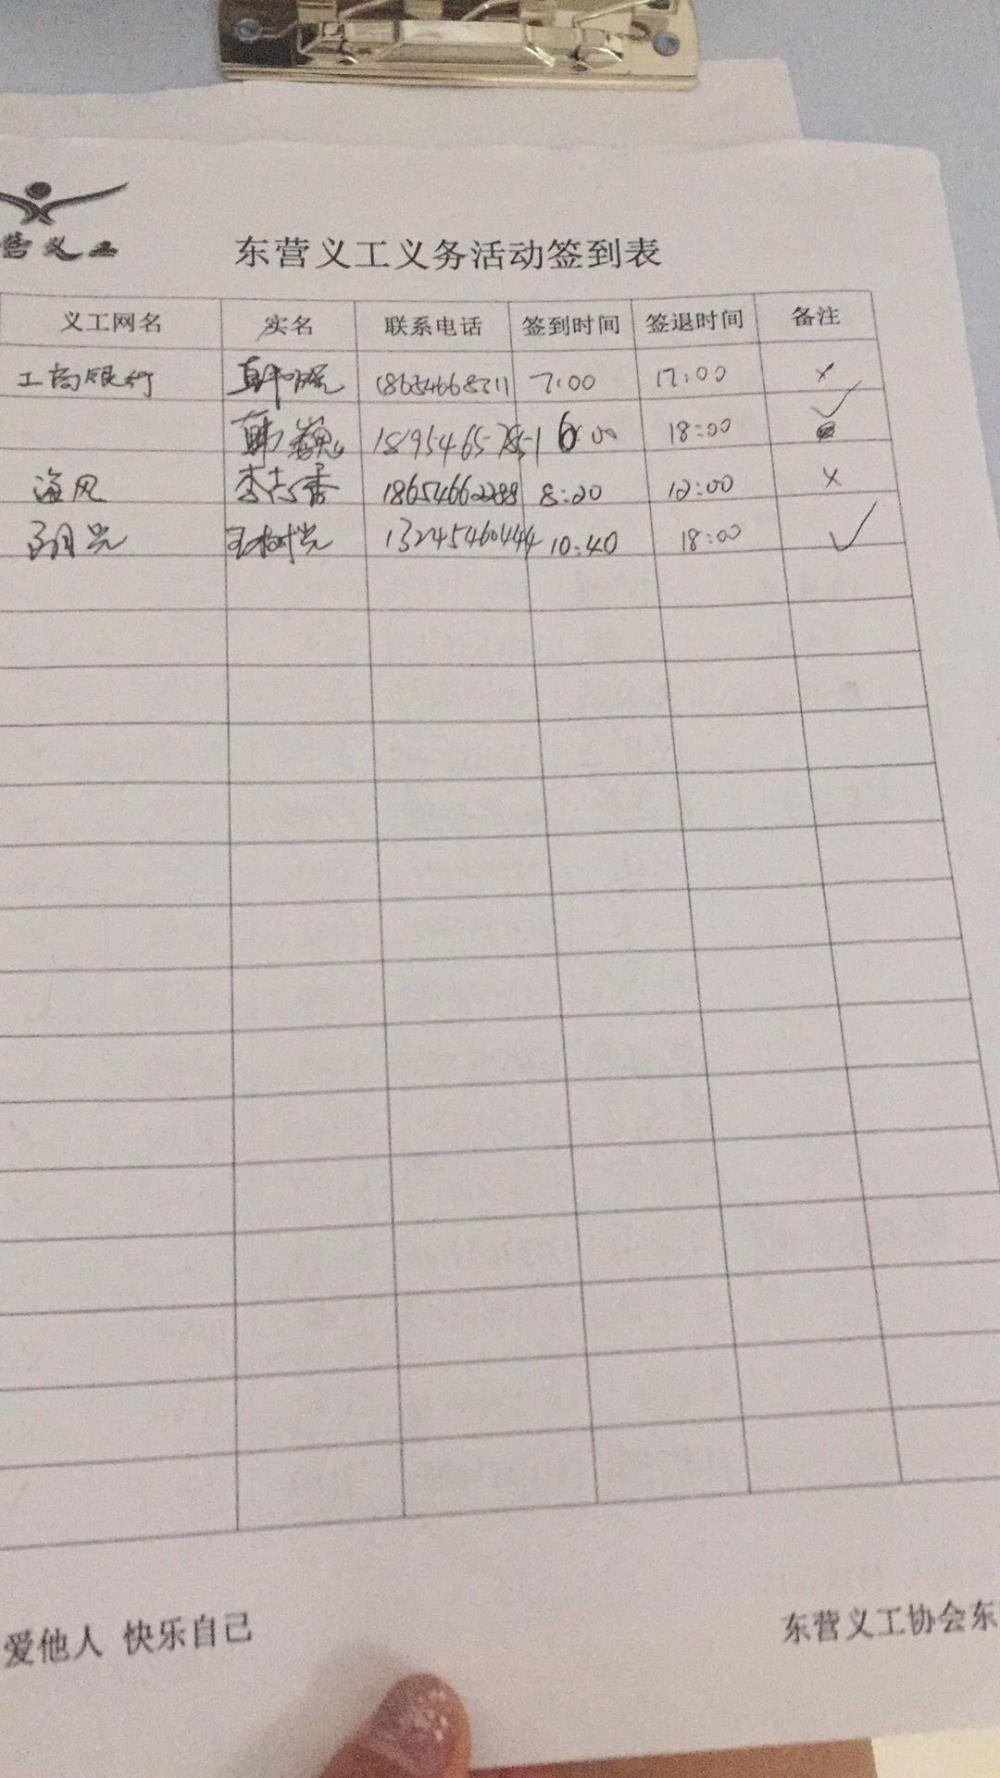 营义工
东营义工义务活动签到表
义工网名 实名 联系电话 签到时间 签退时间 备注
工商银行 韩 18654668211 7:00 17:00 ×
韩 :00 18:00 ✓
海风 李志香 18654662288 8:20 12:00 ×
王树光 13245460444 10:40 18:00 ✓
爱他人 快乐自己
东营义工协会东